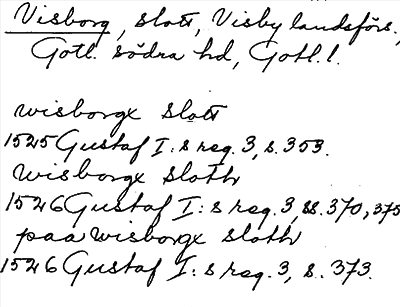 Visborg, slott, Visby landsförs.,
Gotl. södra hd, Gotl. l.
wisborgx slott
1525 Gustaf I:s reg. 3, s. 353.
wisborgx sloth
1526 Gustaf I:s reg. 3, ss. 370, 375
paa wisborgx sloth
1526 Gustaf I:s reg. 3, s. 373.